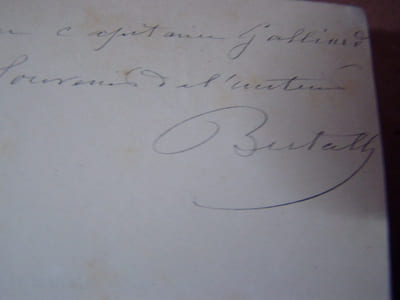 capitaine Galliard
Souvenir de l'auteur
Bertall